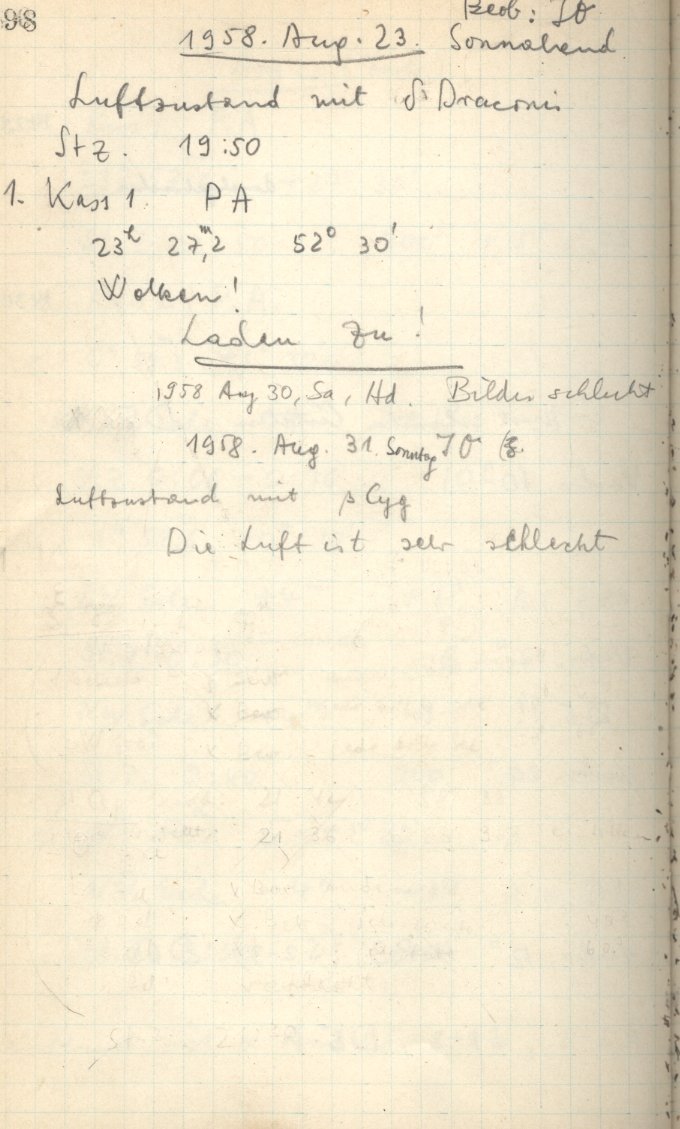 98
Beob: JO
1958. Aug. 23. Sonnabend
Luftzustand mit δ Draconis
Stz. 19:50
1. Kass 1 PA
23h 27,m2 52° 30'
Wolken!
Laden zu!
1958 Aug 30, Sa, Hd. Bilder schlecht
1958. Aug. 31. Sonntag JO
Luftzustand mit β Cyg
Die Luft ist sehr schlecht